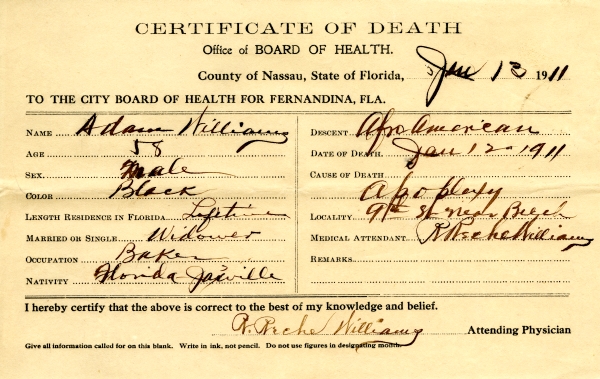 CERTIFICATE OF DEATH
Office of BOARD OF HEALTH.
County of Nassau, State of Florida, Jan 13 1911
TO THE CITY BOARD OF HEALTH FOR FERNANDINA, FLA.
NAME Adam Williams
AGE 58
SEX. Male
COLOR Black
LENGTH RESIDENCE IN FLORIDA Lifetime
MARRIED OR SINGLE Widower
OCCUPATION Baker
NATIVITY Florida Jaxville
DESCENT Afro American
DATE OF DEATH Jan 12 1911
CAUSE OF DEATH
Apoplexy
LOCALITY 9th St Near Beech
MEDICAL ATTENDANT R Reche Williams
REMARKS
I hereby certify that the above is correct to the best of my knowledge and belief.
R. Reche Williams Attending Physician
Give all information called for on this blank. Write in ink, not pencil. Do not use figures in designating month.